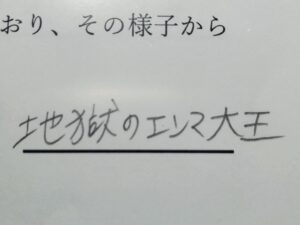 おり、その様子から
地獄のエンマ大王